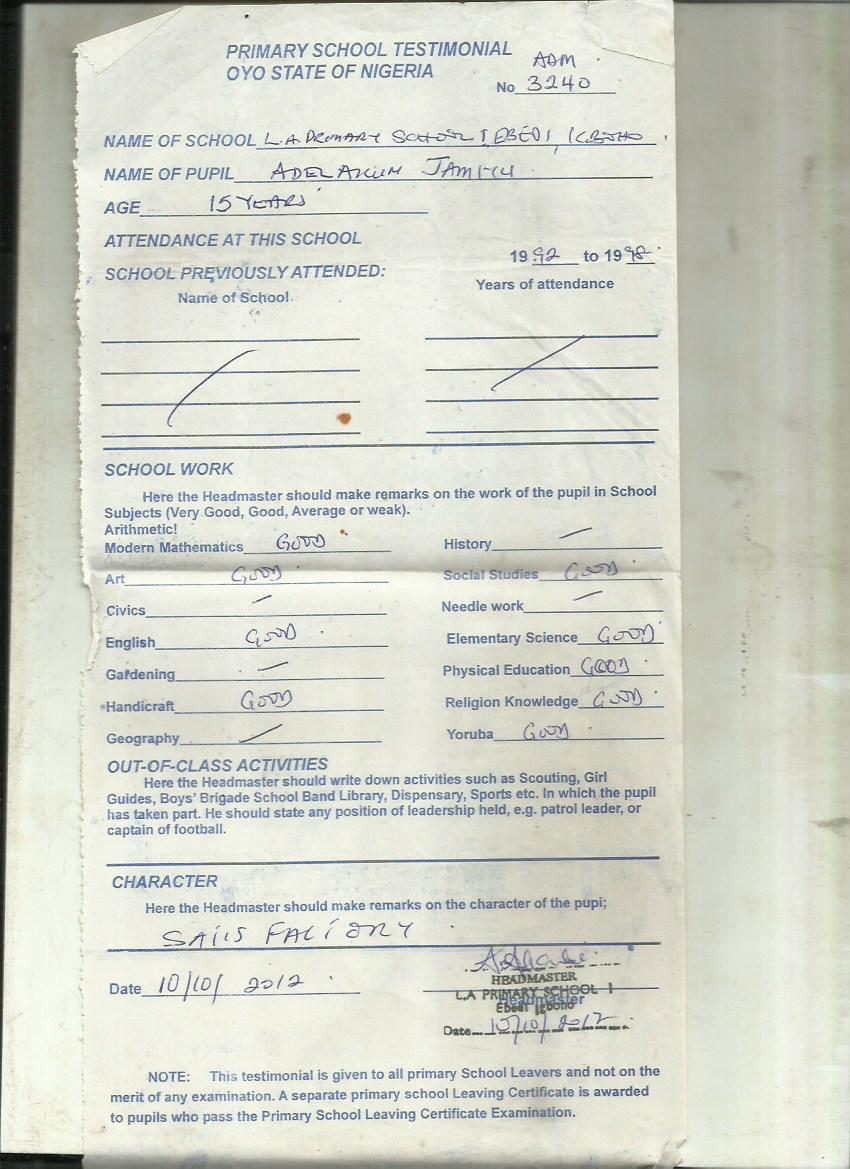 PRIMARY SCHOOL TESTIMONIAL
OYO STATE OF NIGERIA
ADM
No 3240
NAME OF SCHOOL L.A. PRIMARY SCHOOL I, EBEDI, IGBOHO
NAME OF PUPIL ADELAKUN JAMIU
AGE 15 YEARS
ATTENDANCE AT THIS SCHOOL
1992 to 1998
SCHOOL PREVIOUSLY ATTENDED:
Name of School Years of attendance
SCHOOL WORK
Here the Headmaster should make remarks on the work of the pupil in School
Subjects (Very Good, Good, Average or weak).
Arithmetic!
Modern Mathematics GOOD History
Art GOOD Social Studies GOOD
Civics Needle work
English GOOD Elementary Science GOOD
Gardening Physical Education GOOD
Handicraft GOOD Religion Knowledge GOOD
Geography Yoruba GOOD
OUT-OF-CLASS ACTIVITIES
Here the Headmaster should write down activities such as Scouting, Girl
Guides, Boys' Brigade School Band Library, Dispensary, Sports etc. In which the pupil
has taken part. He should state any position of leadership held, e.g. patrol leader, or
captain of football.
CHARACTER
Here the Headmaster should make remarks on the character of the pupi;
SAIIS FACTORY
Date 10/10/2012
HEADMASTER
L.A PRIMARY SCHOOL 1
Headmaster
Ebedi Igboho
Date 10/10/2012
NOTE: This testimonial is given to all primary School Leavers and not on the
merit of any examination. A separate primary school Leaving Certificate is awarded
to pupils who pass the Primary School Leaving Certificate Examination.